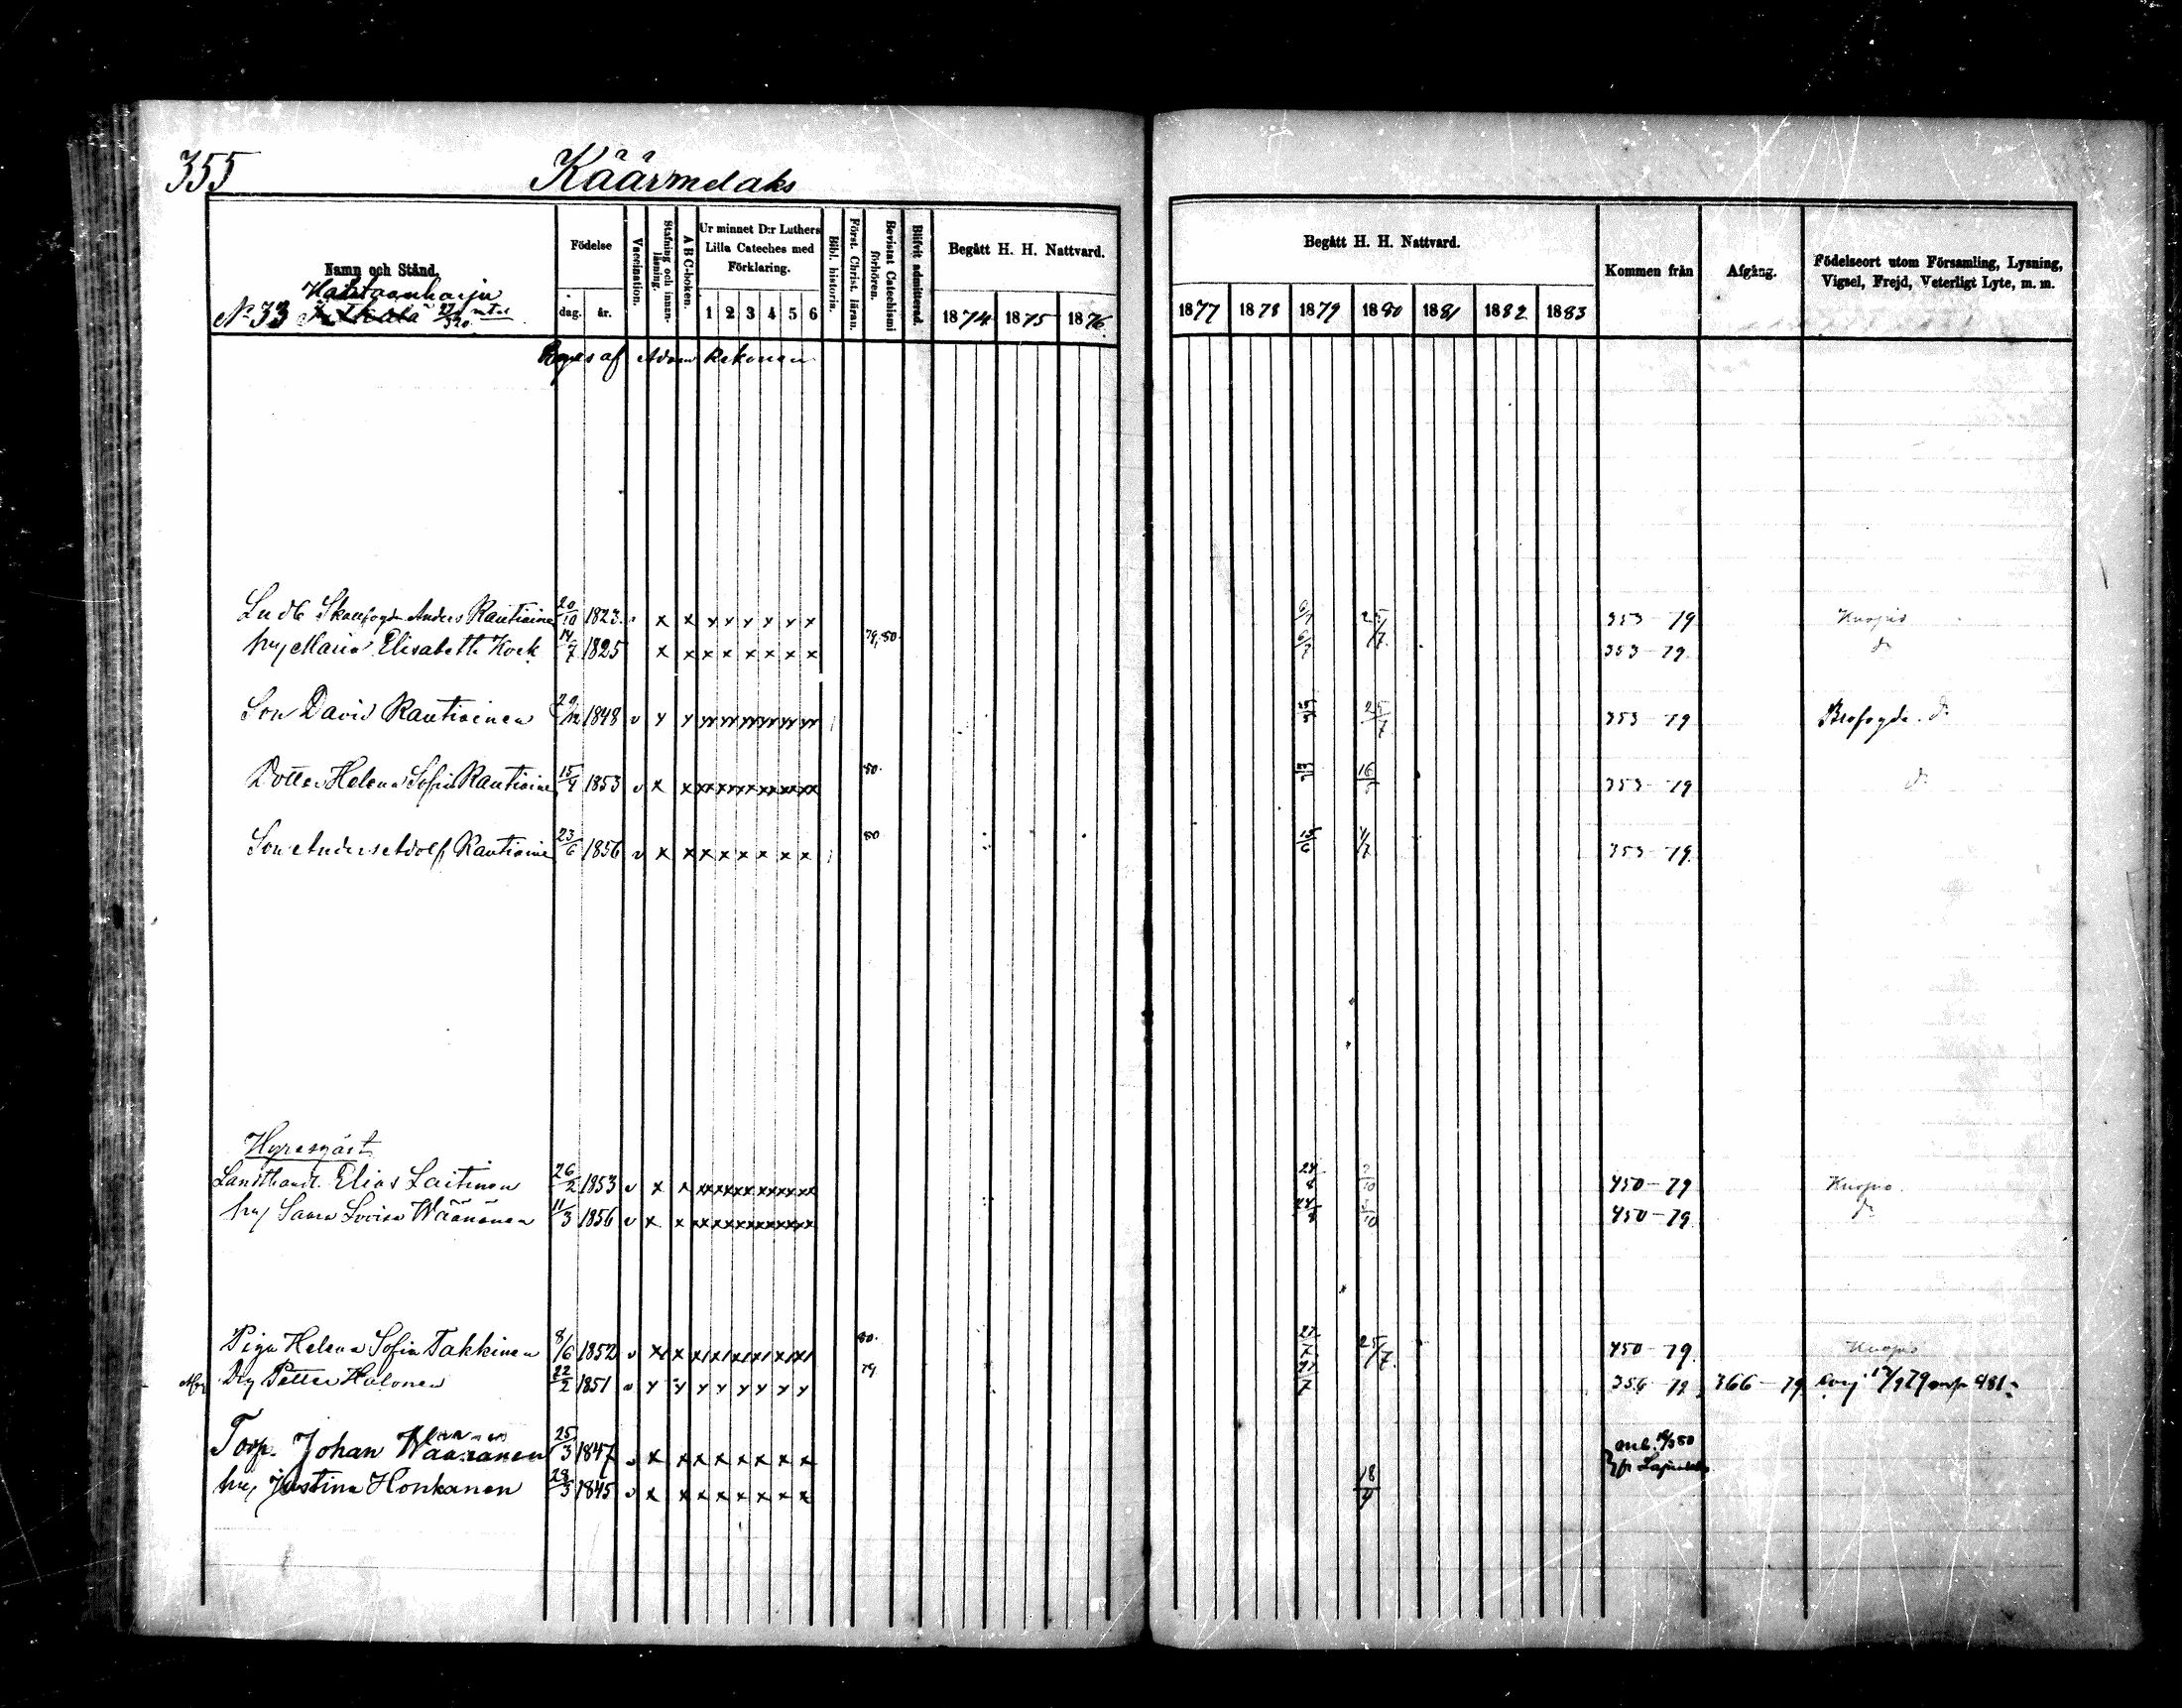 355
Käärmelaks
Namn och Stånd.
Födelse
dag. år.
Vaccination.
Stafning och innanläsning.
A B C-boken.
Ur minnet D:r Luthers Lilla Cateches med Förklaring.
1 2 3 4 5 6
Bibl. historia.
Först. Christ. läran.
Bevistat Catechismi förhören.
Blifvit admitterad.
Begått H. H. Nattvard.
1874 1875 1876
Begått H. H. Nattvard.
1877 1878 1879 1880 1881 1882 1883
Kommen från
Afgång.
Födelseort utom Församling, Lysning, Vigsel, Frejd, Veterligt Lyte, m. m.
No 33
af Adam Kekonen
Anders Rautiaine 20/10 1823 x x x x x x x x 6/7 25/7 353-79 Kuopio
hu Maria Elisabeth Kock 14/7 1825 x x x x x x x x 79, 80. 6/7 353-79 do
Son David Rautiainen 1848 25/7 353-79 do
Dotter Helena Sofia Rautiaine 15/4 1853 80. 353-79 do
Son Anders Adolf Rautiaine 23/6 1856 v x x x x x x x x 80 15/6 4/7 353-79
Hyresgäst
Landthandl. Elias Laitinen 26/2 1853 24/8 450-79 Kuopio
hu Saara Lovisa Wäänänen 11/3 1856 24/8 450-79 do
Piga Helena Sofia Takkinen 8/6 1852 80. 27/7 25/7 450-79 Kuopio
Dg Petter Holonen 22/2 1851 79 27/7 356-79 366-79
Torp. Johan Wäänänen 25/3 1847 x x x x x x x x
hu Justina Honkanen 28/3 1845 v x x x x x x x x 18/7